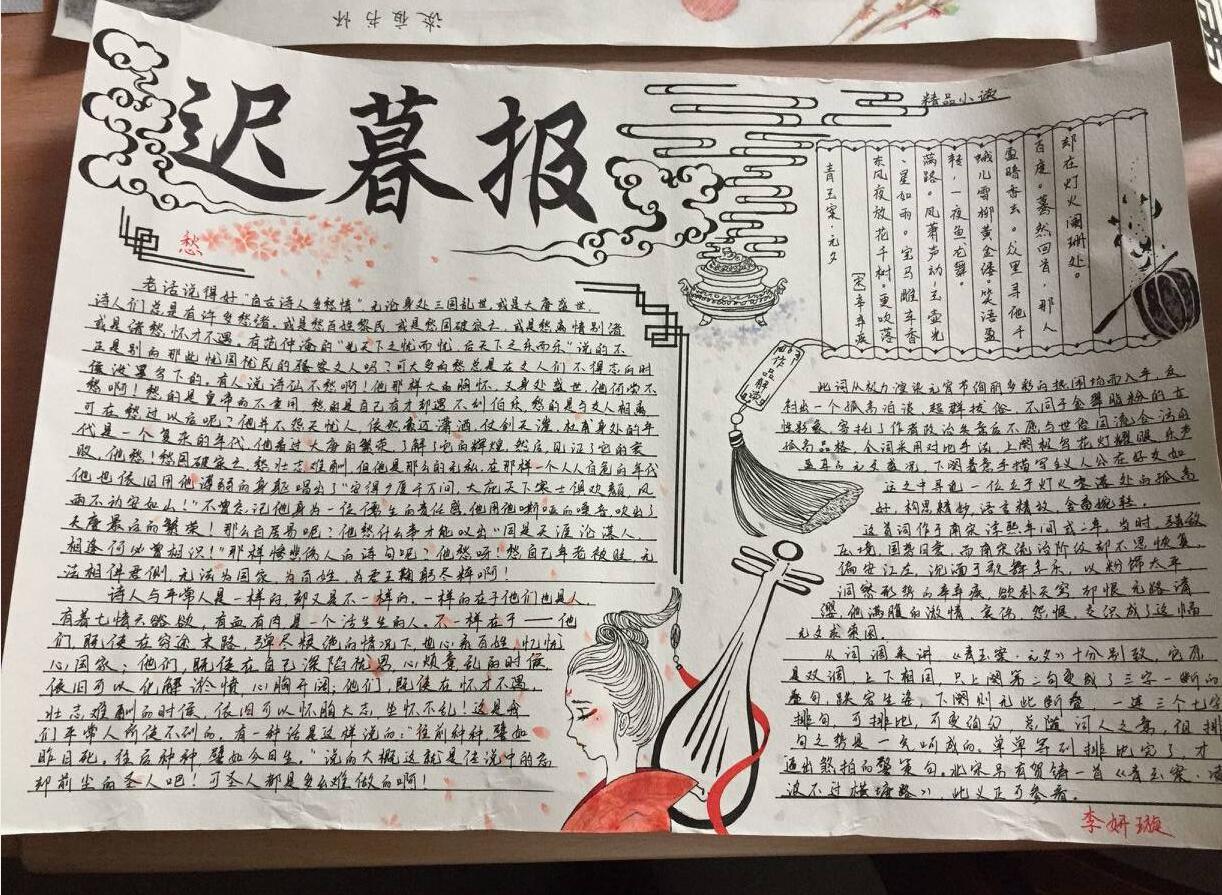 读夜书怀
迟暮报
愁
老话说得好"自古诗人多愁情"无论身处三国乱世,或是大唐盛世,
诗人们总是有许多愁绪。或是愁百姓黎民 或是愁国破家亡,或是愁离情别绪
或是绪愁怀才不遇。有范仲淹的"先天下之忧而忧,后天下之乐而乐"说的不
正是别的那些忧国忧民的骚客文人吗?可大多的愁总是在文人们不得志的时
候泼墨写下的。有人说诗仙不愁啊!他那样大的胸怀 又身处盛世 他何尝不
愁啊!愁的是皇帝的不重用 愁的是自己有才却遇不到伯乐,愁的是与友人相离
可在愁过以后呢?他并不怨天忧人,依然豪迈潇洒,仗剑天涯,杜甫身处的年
代是一个复杂的年代,他看过大唐的繁荣,了解了它的辉煌,然后见证了它的衰
败,他愁!愁国破家亡,愁壮志难酬,但他是那么的无私,在那样一个人人自危的年代
他也依旧用他薄弱的身躯唱出了"安得广厦千万间,大庇天下寒士俱欢颜,风
雨不动安如山!"不曾忘记他身为一位儒生的责任感,他用他嘶哑的嗓音吹出了
大唐最后的繁荣!那么白居易呢?他愁什么事才能叹出"同是天涯沦落人,
相逢何必曾相识!"那样惨悲伤人的语句呢?他愁呀!愁自己年老被贬,无
法相伴君侧,无法为国家,为百姓,为君王鞠躬尽粹啊!
诗人与平常人是一样的,却又是不一样的。一样的在于他们也是人,
有着七情六欲,有血有肉是一个活生生的人。不一样在于——他
们,既使在穷途末路,弹尽粮绝的情况下也心系百姓,忆忧
心国家;他们,既使在自己深陷忧思,心烦意乱的时候
依旧可以化解淤情,心胸开阔;他们,既使在怀才不遇,
壮志难酬的时候,依旧可以怀胸大志,坐怀不乱!这是我
们平常人所使不到的。有一种话是这样说的:"往前种种,譬如
昨日死。往后种种,譬如今日生。"说的大概这就是传说中的忘
却前尘的圣人吧!可圣人都是多么难做的啊!
精品小读
青玉案·元夕
[宋]辛弃疾
东风夜放花千树。更吹落
、星如雨。宝马雕车香
满路。凤萧声动,玉壶光
转,一夜鱼龙舞。
蛾儿雪柳黄金缕。笑语盈
盈暗香去。众里寻他千
百度。蓦然回首,那人
却在灯火阑珊处。
作品解读
此词从极力渲染元宵节绚丽多彩的热闹场面入手,反
衬出一个孤高泊淡,超群拔俗,不同于金翠脂粉的女
性形象,寄托了作者政治失意后不愿与世俗同流合污的
孤高品格。全词采用对比手法,上阕极写花灯耀眼、乐声
盈耳的元夕盛况,下阕着意描写主人公在好女如
云之中寻觅一位立于灯火零落处的孤高
好,构思精妙,语言精致,含蓄婉转。
这首词作于南宋淳熙年间或二年,当时,强敌
压境,国势日衰,而南宋统治阶级却不思恢复,
偏安江左,沉湎于歌舞享乐,以粉饰太平,
洞察形势的辛弃疾,欲补天穹,却恨无路请
缨,他满腹的激情、哀伤、怨恨,交织成了这幅
元夕求索图。
从词调来讲,《青玉案·元夕》十分别致,它原
是双调,上下相同,只上阕第二句变成了三字一断的
叠句,跌宕生姿,下阕则无此断叠,一连三个七字
排句,可排比,可变幻,总随词人之意,但排
句之势是一气呵成的,单单等到排比完了,才
逼出煞拍的警策句。北宋另有贺铸一首《青玉案·凌
波不过横塘路》,此义正可参看。
李妍璇